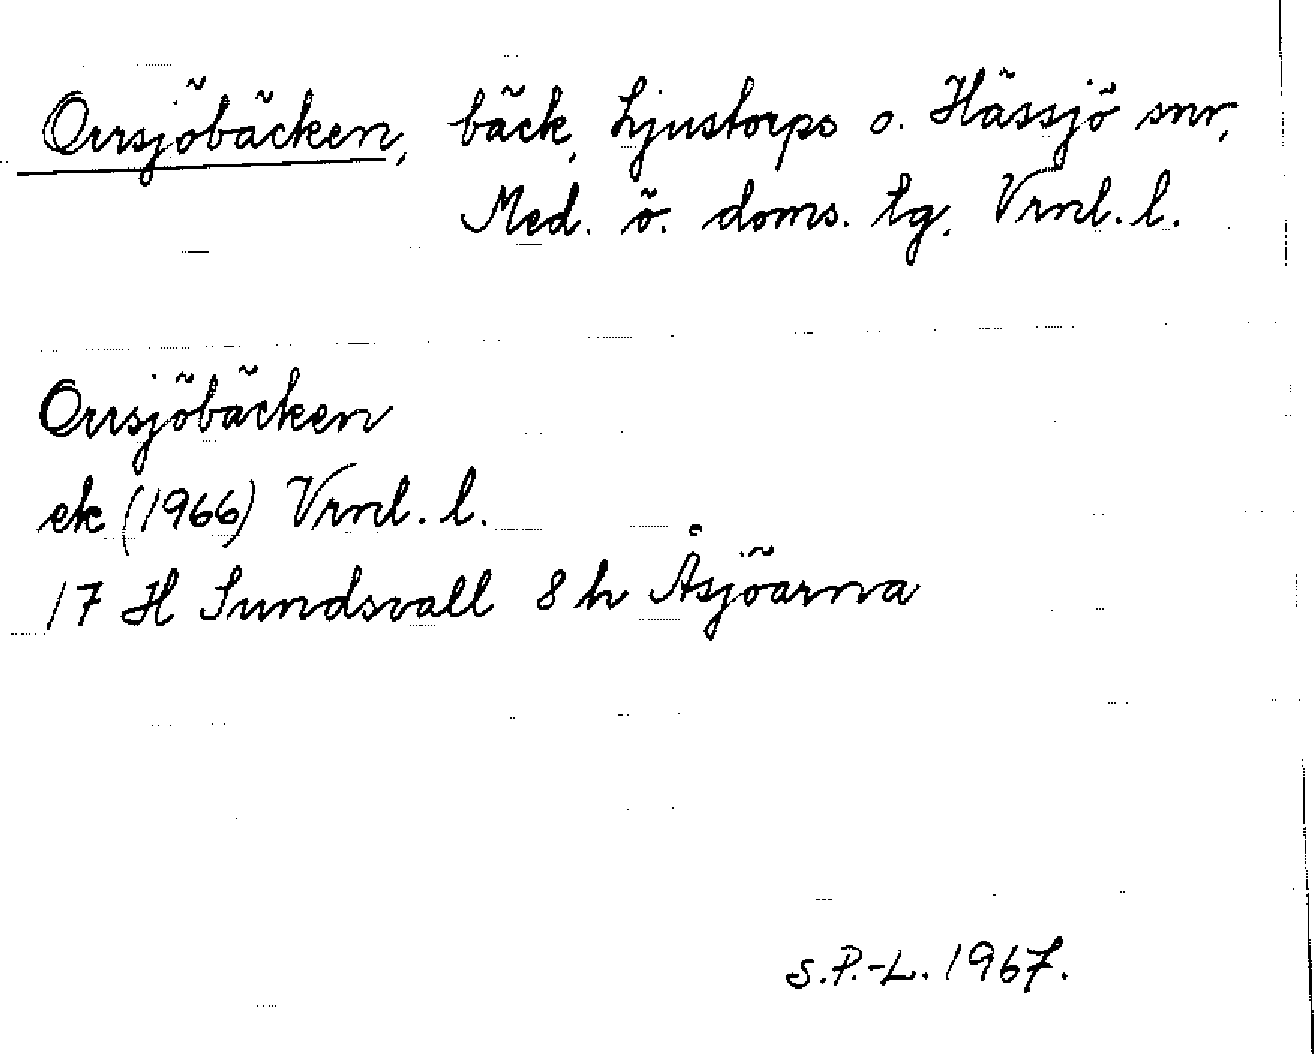 Orrsjöbäcken, bäck, Ljustorps o. Hässjö snr,
Med. ö. doms. tg. Vrnl. l.
Orrsjöbäcken
ek (1966) Vrnl. l.
17 H Sundsvall 8 h Åsjöarna
S.P.-L. 1967.